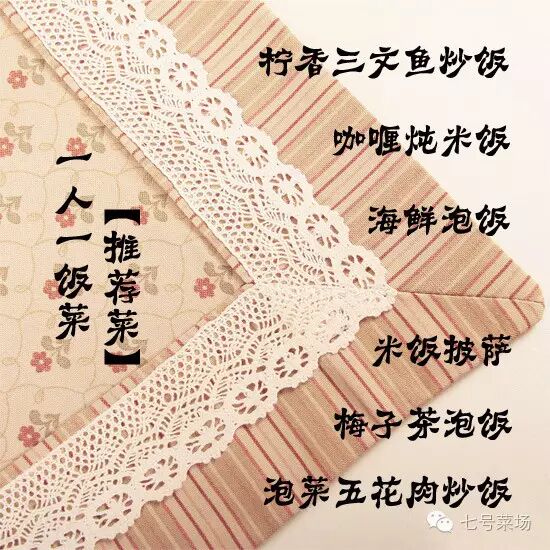 柠香三文鱼炒饭
咖喱炖米饭
海鲜泡饭
米饭披萨
梅子茶泡饭
泡菜五花肉炒饭
【推荐菜】
一人一饭菜
七号菜场